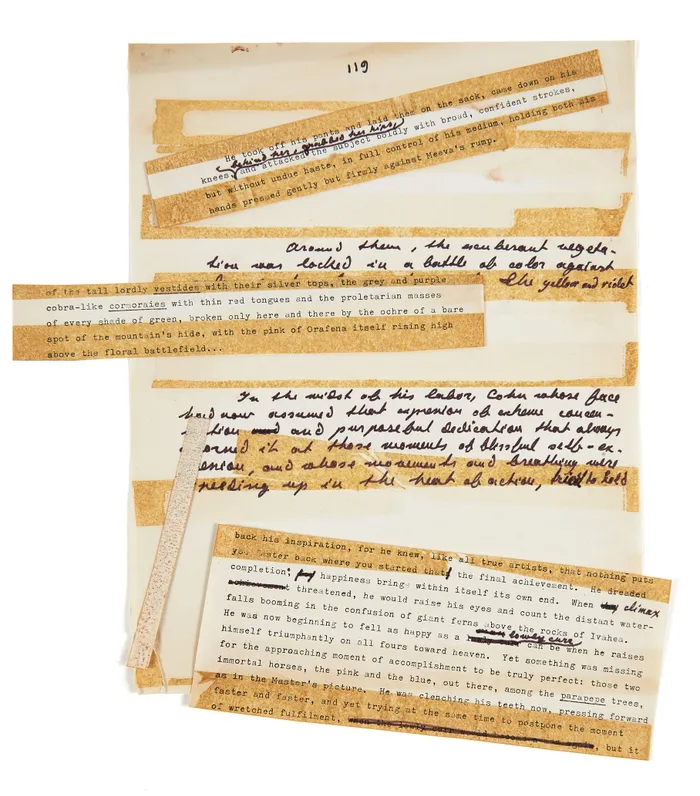 119
He took off his pants and laid that on the sack, came down on his
behind her, grabbed her hips
knees, and attacked the subject boldly with broad, confident strokes,
but without undue haste, in full control of his medium, holding both his
hands pressed gently but firmly against Meeva's rump.
Around them, the exuberant vegeta-
tion was locked in a battle of color against
the yellow and violet
of the tall lordly vestides with their silver tops, the grey and purple
cobra-like cormoraies with thin red tongues and the proletarian masses
of every shade of green, broken only here and there by the ochre of a bare
spot of the mountain's hide, with the pink of Orafena itself rising high
above the floral battlefield...
In the midst of his labor, Cohn whose face
had now assumed that expression of extreme concen-
tration and purposeful dedication that always
adorned it at those moments of blissful self-ex-
pression, and whose movements and breathing were
speeding up in the heat of action, tried to hold
back his inspiration, for he knew, like all true artists, that nothing puts
you faster back where you started that the final achievement. He dreaded
completion: happiness brings within itself its own end. When climax
threatened, he would raise his eyes and count the distant water-
falls booming in the confusion of giant ferns above the rocks of Ivahea.
He was now beginning to fell as happy as a man lowly can be when he raises
himself triumphantly on all fours toward heaven. Yet something was missing
for the approaching moment of accomplishment to be truly perfect: those two
immortal horses, the pink and the blue, out there, among the parapepe trees,
as in the Master's picture. He was clenching his teeth now, pressing forward
faster and faster, and yet trying at the same time to postpone the moment
of wretched fulfilment, but it